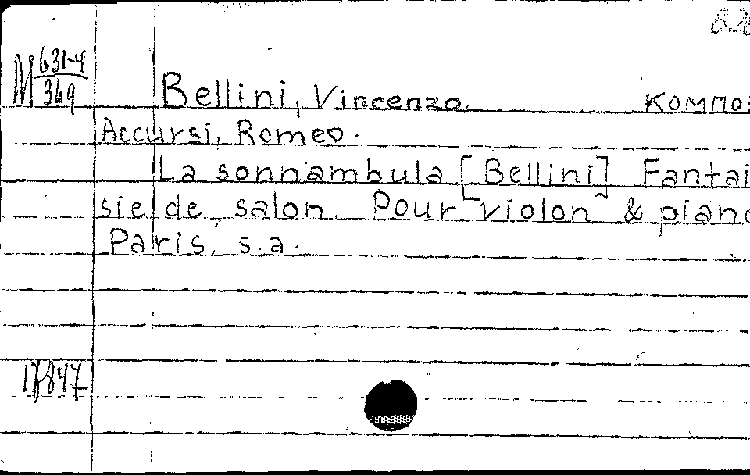 M 631-4
369
Bellini, Vincenzo. Композ
Accursi, Romeo.
La sonnambula [Bellini] Fantai
sie de salon. Pour violon & piano
Paris, s.a.
17847